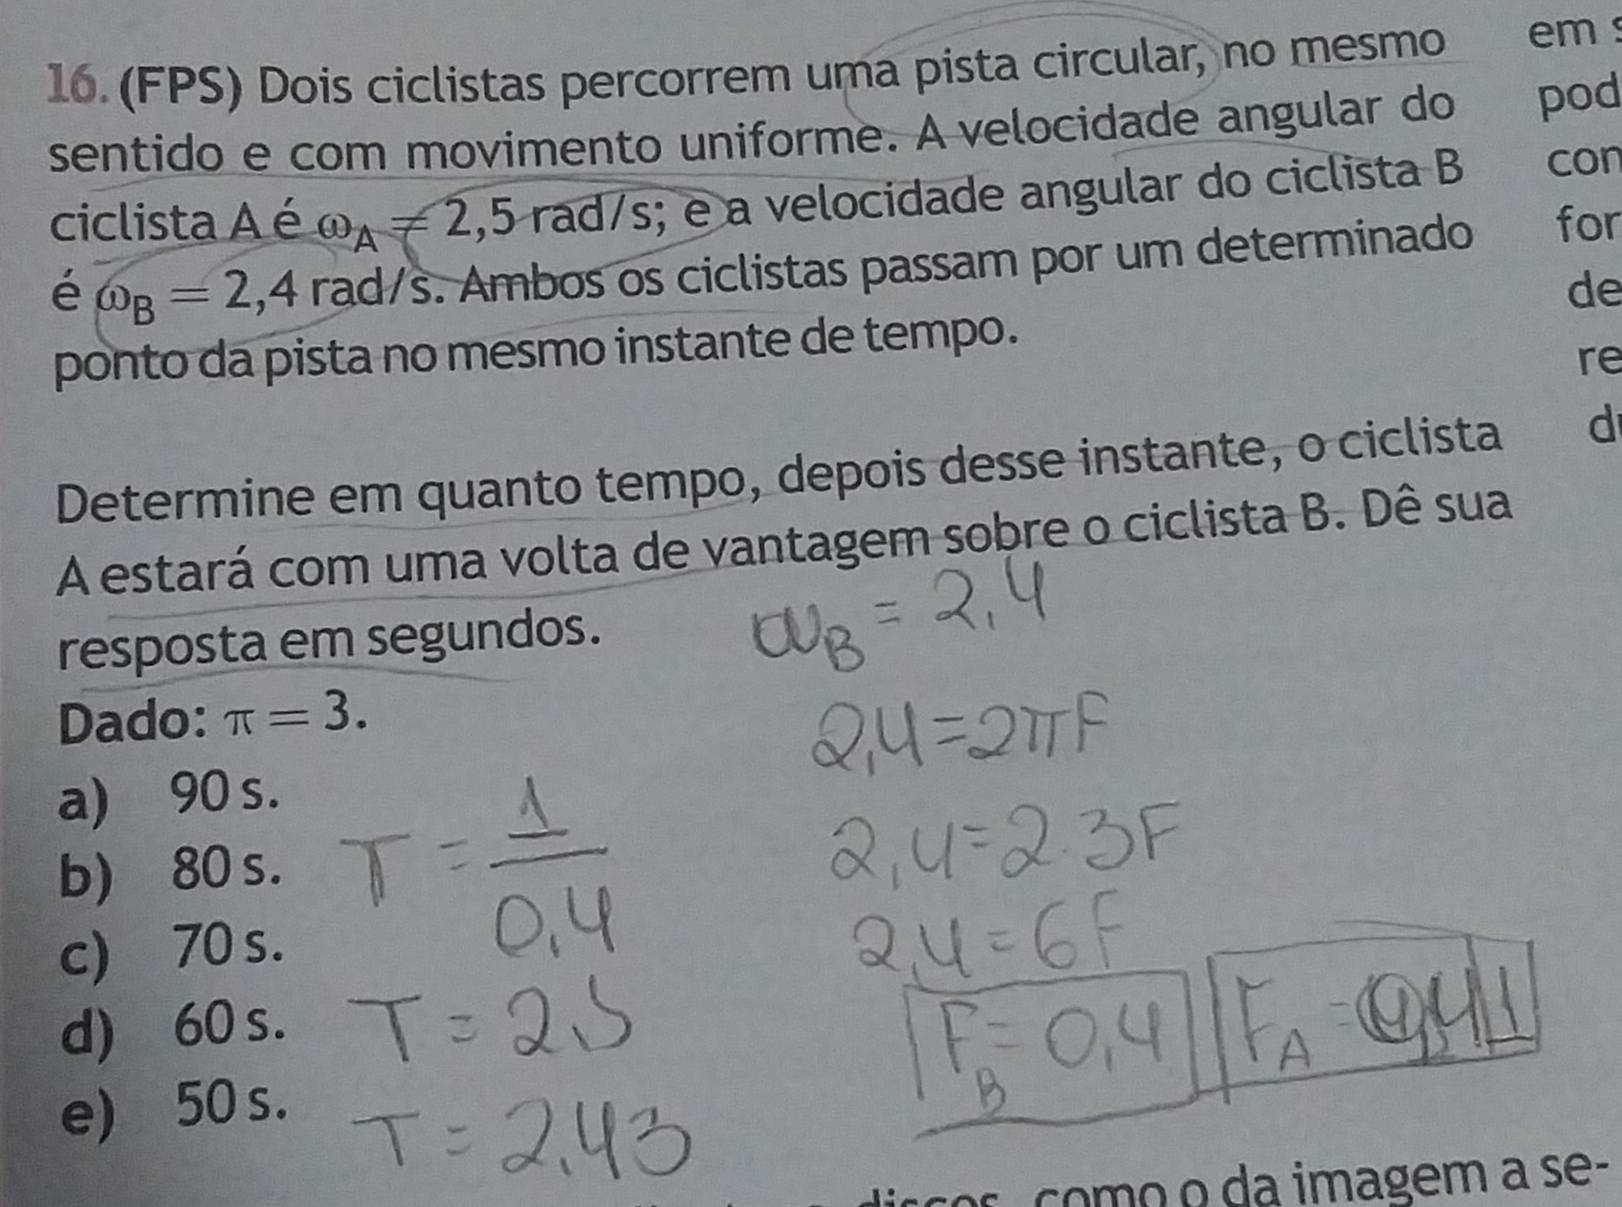 16. (FPS) Dois ciclistas percorrem uma pista circular, no mesmo
sentido e com movimento uniforme. A velocidade angular do
ciclista A é ωA = 2,5 rad/s; e a velocidade angular do ciclista B
é ωB = 2,4 rad/s. Ambos os ciclistas passam por um determinado
ponto da pista no mesmo instante de tempo.
Determine em quanto tempo, depois desse instante, o ciclista
A estará com uma volta de vantagem sobre o ciclista B. Dê sua
resposta em segundos.
Dado: π = 3.
a) 90 s.
b) 80 s.
c) 70 s.
d) 60 s.
e) 50 s.
T = 1/0,4
T = 2,5
T = 2,43
ωB = 2,4
2,4 = 2πF
2,4 = 2.3F
2,4 = 6F
FB = 0,4
FA =
em
pod
con
for
de
re
como o da imagem a se-